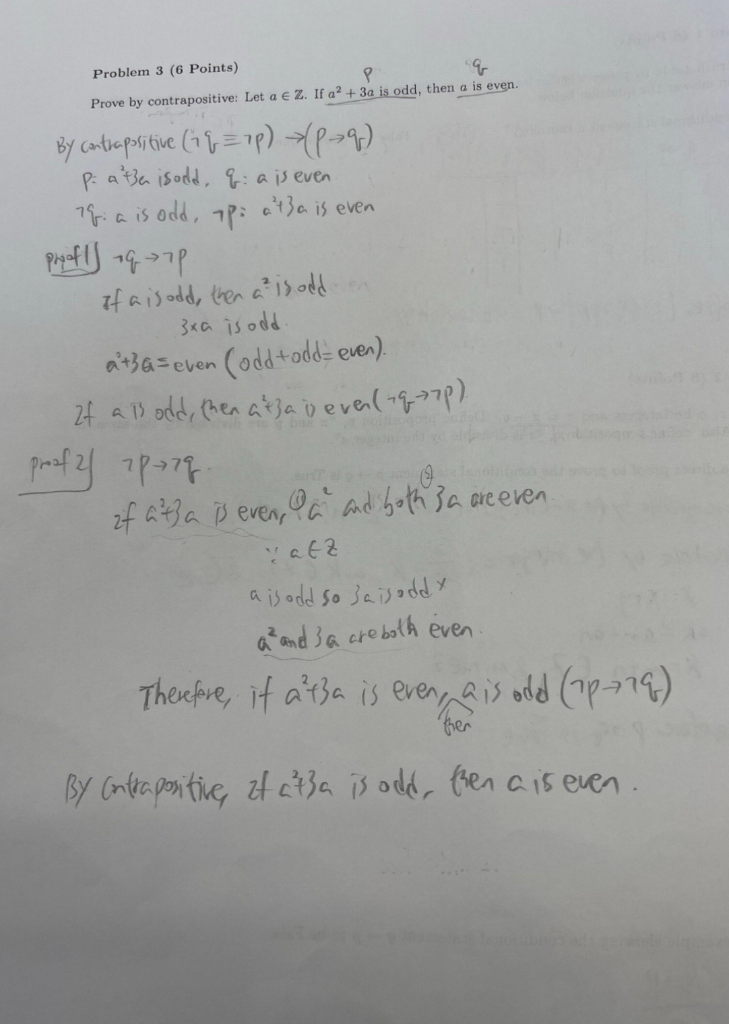 Problem 3 (6 Points)
p q
Prove by contrapositive: Let a ∈ Z. If a² + 3a is odd, then a is even.
By contrapositive (¬q ≡ ¬p) → (p → q)
p: a²+3a is odd, q: a is even
¬q: a is odd, ¬p: a²+3a is even
proof 1) ¬q → ¬p
If a is odd, then a² is odd
3×a is odd.
a²+3a = even (odd + odd = even).
If a is odd, then a²+3a is even (¬q → ¬p)
proof 2) ¬p → ¬q.
②
if a²+3a is even, ① a² and both 3a are even.
∵ a ∈ Z
a is odd so 3a is odd ×
a² and 3a are both even.
Therefore, if a²+3a is even, a is odd (¬p → ¬q)
then
By Contrapositive, if a²+3a is odd, then a is even.